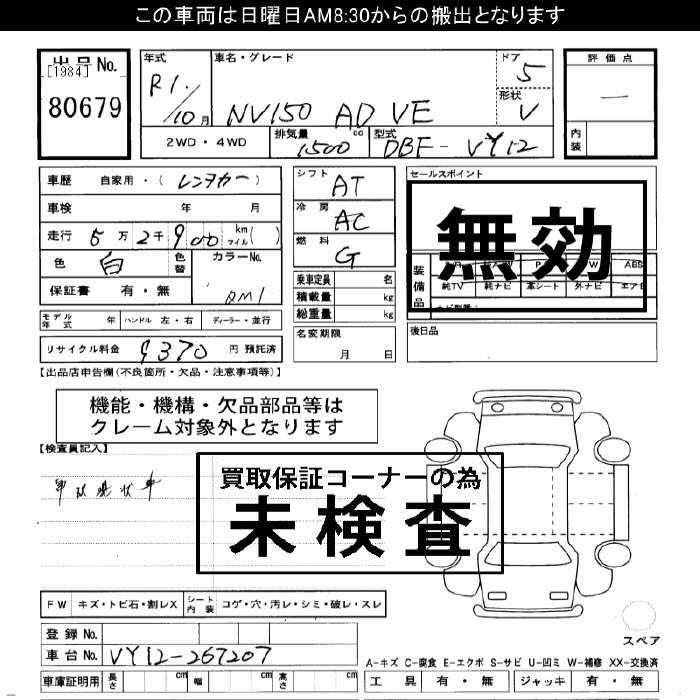 この車両は日曜日AM8:30からの搬出となります
出品No.
[1984]
80679
年式
R1.
/10月
車名・グレード
NV150 AD VE
ドア
5
形状
V
評価点
―
内装
2WD・4WD
排気量
1500 cc
型式
DBF-VY12
車歴 自家用・(レンタカー)
車検 年 月
走行 5万2千900 km マイル( )
色 白 色替 カラーNo.
保証書 有・無 QM1
シフト
AT
冷房
AC
燃料
G
乗車定員 名
積載量 kg
総重量 kg
セールスポイント
無効
装備品
ABS
純TV 純ナビ 革シート 外ナビ エアB
モデル年式 年 ハンドル 左・右 ディーラー・並行
名変期限
月 日
後日品
リサイクル料金 9370 円 預託済
【出品店申告欄(不良箇所・欠品・注意事項等)】
機能・機構・欠品部品等は
クレーム対象外となります
【検査員記入】
買取保証コーナーの為
未検査
FW キズ・トビ石・割レX シート内装 コゲ・穴・汚レ・シミ・破レ・スレ
スペア
登録No.
車台No. VY12-267207
A-キズ C-腐食 E-エクボ S-サビ U-凹ミ W-補修 XX-交換済
車庫証明用 長さ cm 幅 cm 高さ cm
工具 有・無 ジャッキ 有・無